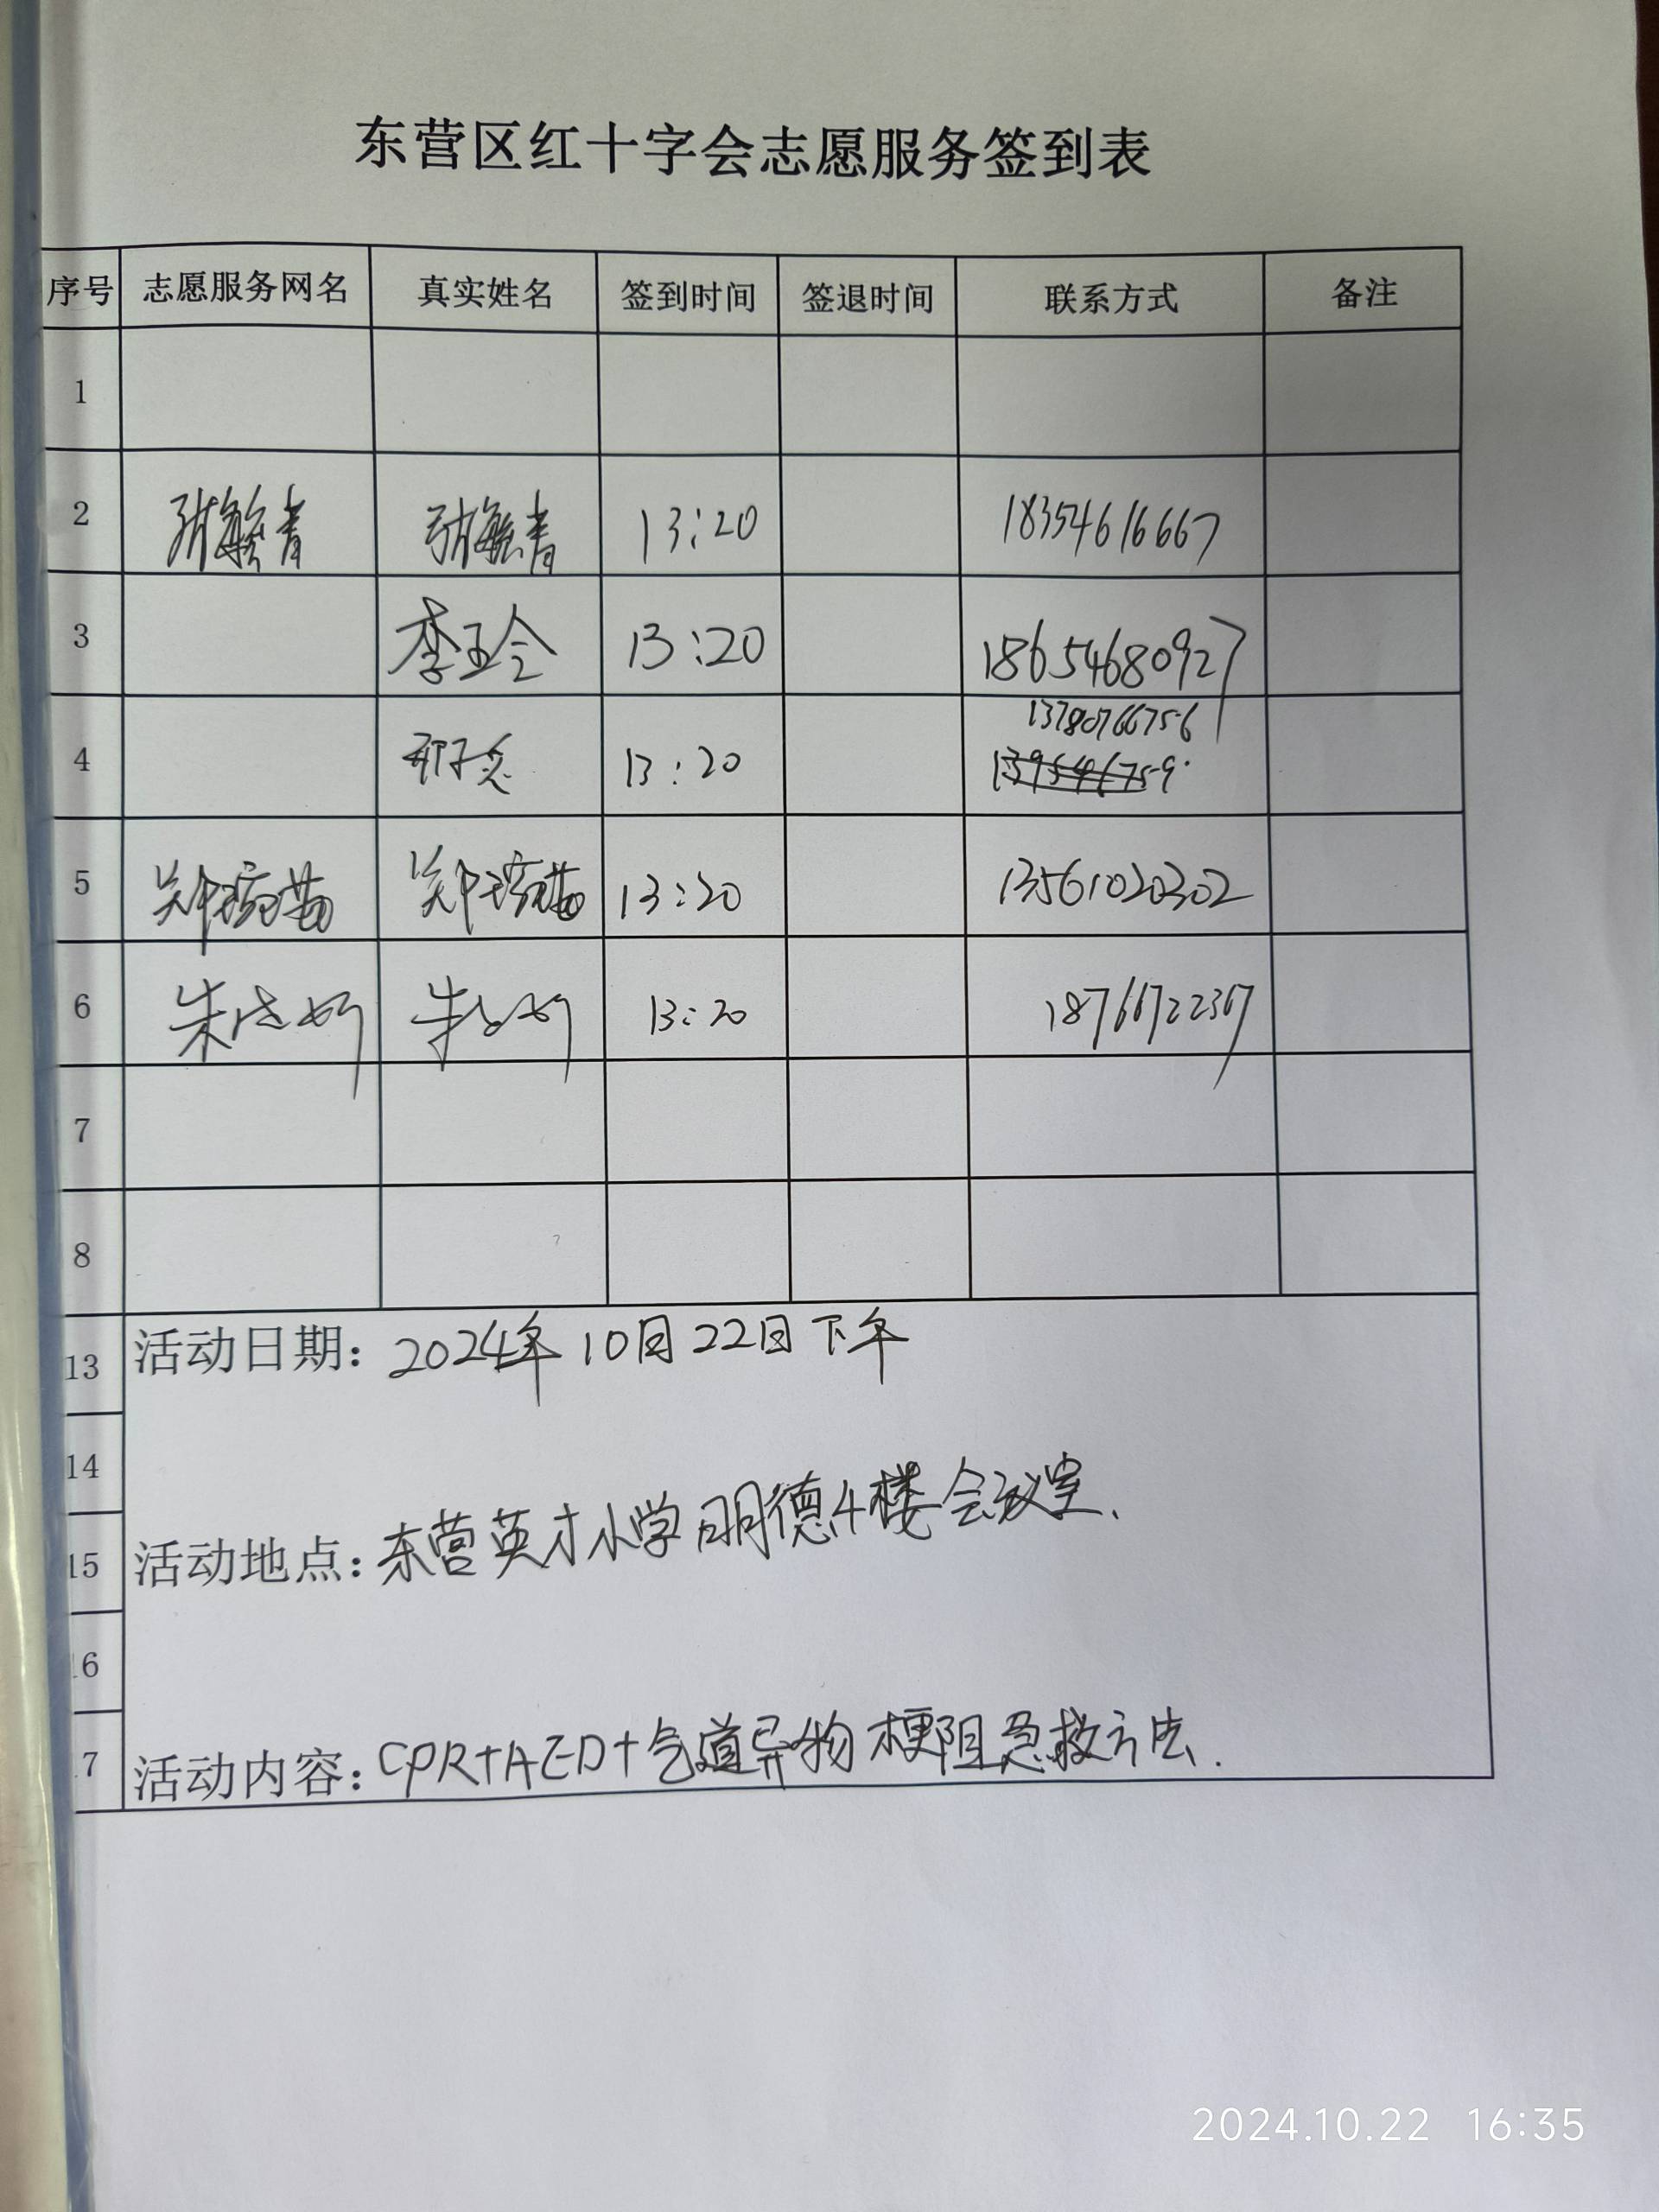 东营区红十字会志愿服务签到表
序号 志愿服务网名 真实姓名 签到时间 签退时间 联系方式 备注
1
2 13:20 18354616667
3 李玉令 13:20 18654680927
4 13:20 13780766756
5 郑瑞苗 郑瑞苗 13:20 13561020302
6 13:20 18766722367
7
8
13 活动日期：2024年10月22日下午
14
15 活动地点：东营英才小学明德4楼会议室.
16
17 活动内容：CPR+AED+气道异物梗阻急救方法.
2024.10.22 16:35